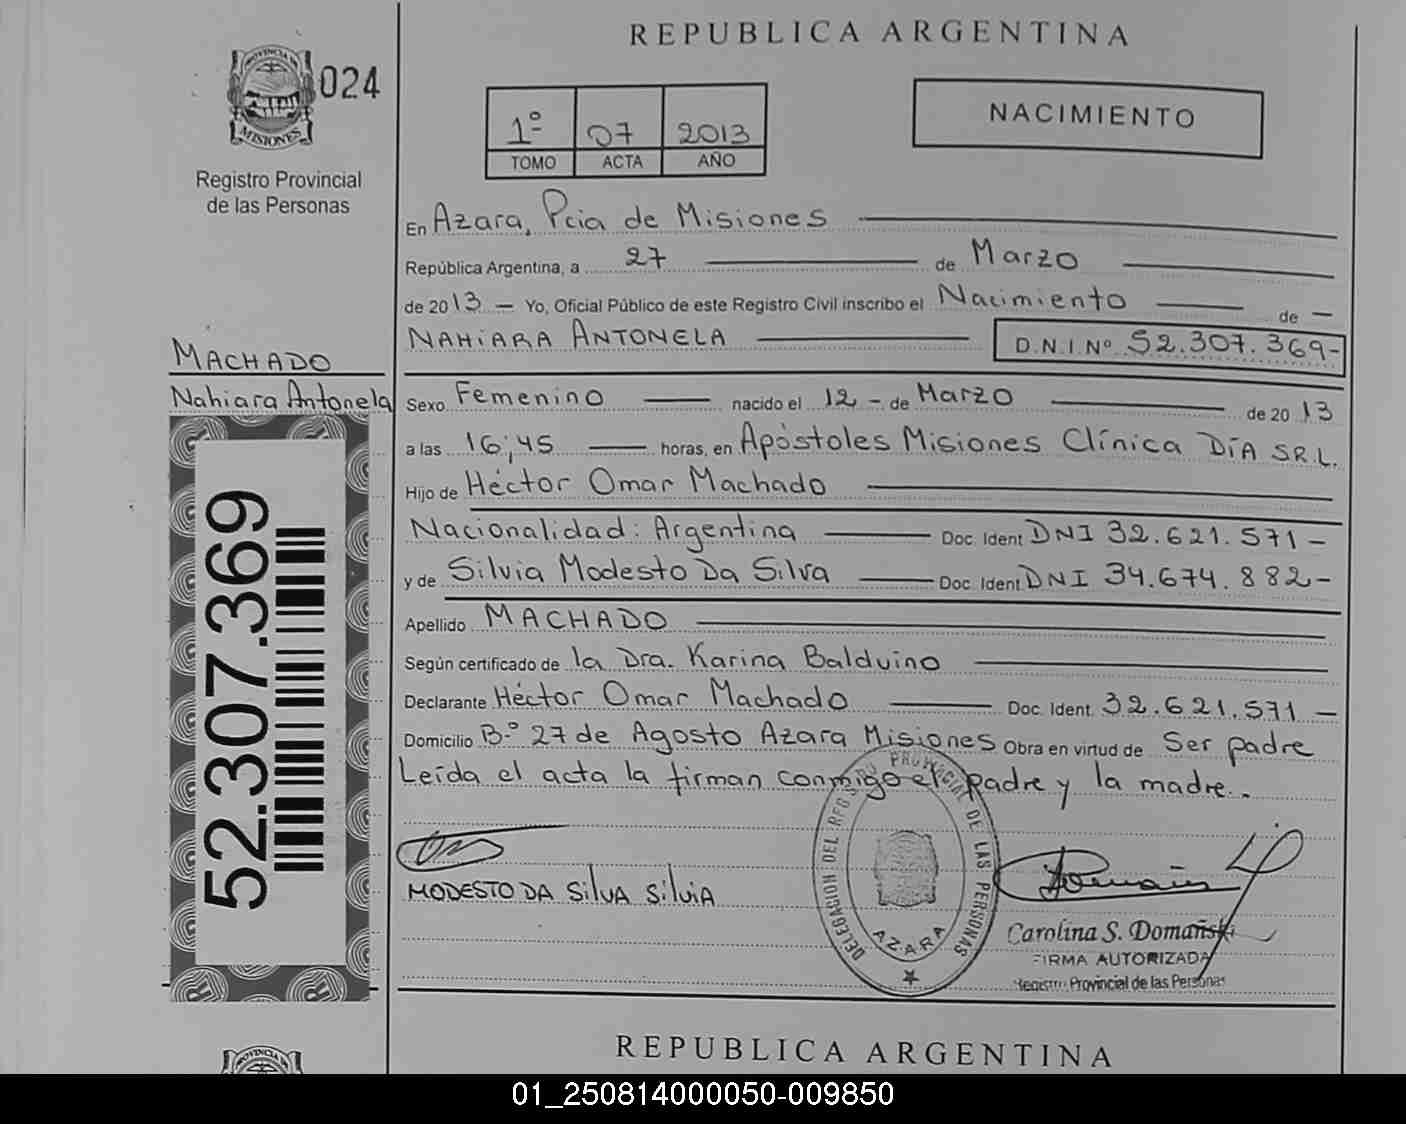 REPUBLICA ARGENTINA
PROVINCIA DE
MISIONES
024
Registro Provincial
de las Personas
1º 07 2013
TOMO ACTA AÑO
NACIMIENTO
En Azara, Pcia de Misiones
República Argentina, a 27 de Marzo
de 2013 — Yo, Oficial Público de este Registro Civil inscribo el Nacimiento de —
NAHIARA ANTONELA D.N.I.Nº 52.307.369-
MACHADO
Nahiara Antonela
52.307.369
Sexo Femenino nacido el 12 - de Marzo de 2013
a las 16;45 horas, en Apóstoles Misiones Clínica DÍA S.R.L.
Hijo de Héctor Omar Machado
Nacionalidad: Argentina Doc. Ident DNI 32.621.571 -
y de Silvia Modesto Da Silva Doc. Ident DNI 34.674.882-
Apellido MACHADO
Según certificado de la Dra. Karina Balduino
Declarante Héctor Omar Machado Doc. Ident. 32.621.571 —
Domicilio B.º 27 de Agosto Azara Misiones Obra en virtud de Ser padre
Leída el acta la firman conmigo el padre y la madre..
MODESTO DA SILVA SILVIA
DELEGACION DEL REGISTRO PROVINCIAL DE LAS PERSONAS
AZARA
Carolina S. Domañski
FIRMA AUTORIZADA
Registro Provincial de las Personas
REPUBLICA ARGENTINA
PROVINCIA DE
01_250814000050-009850